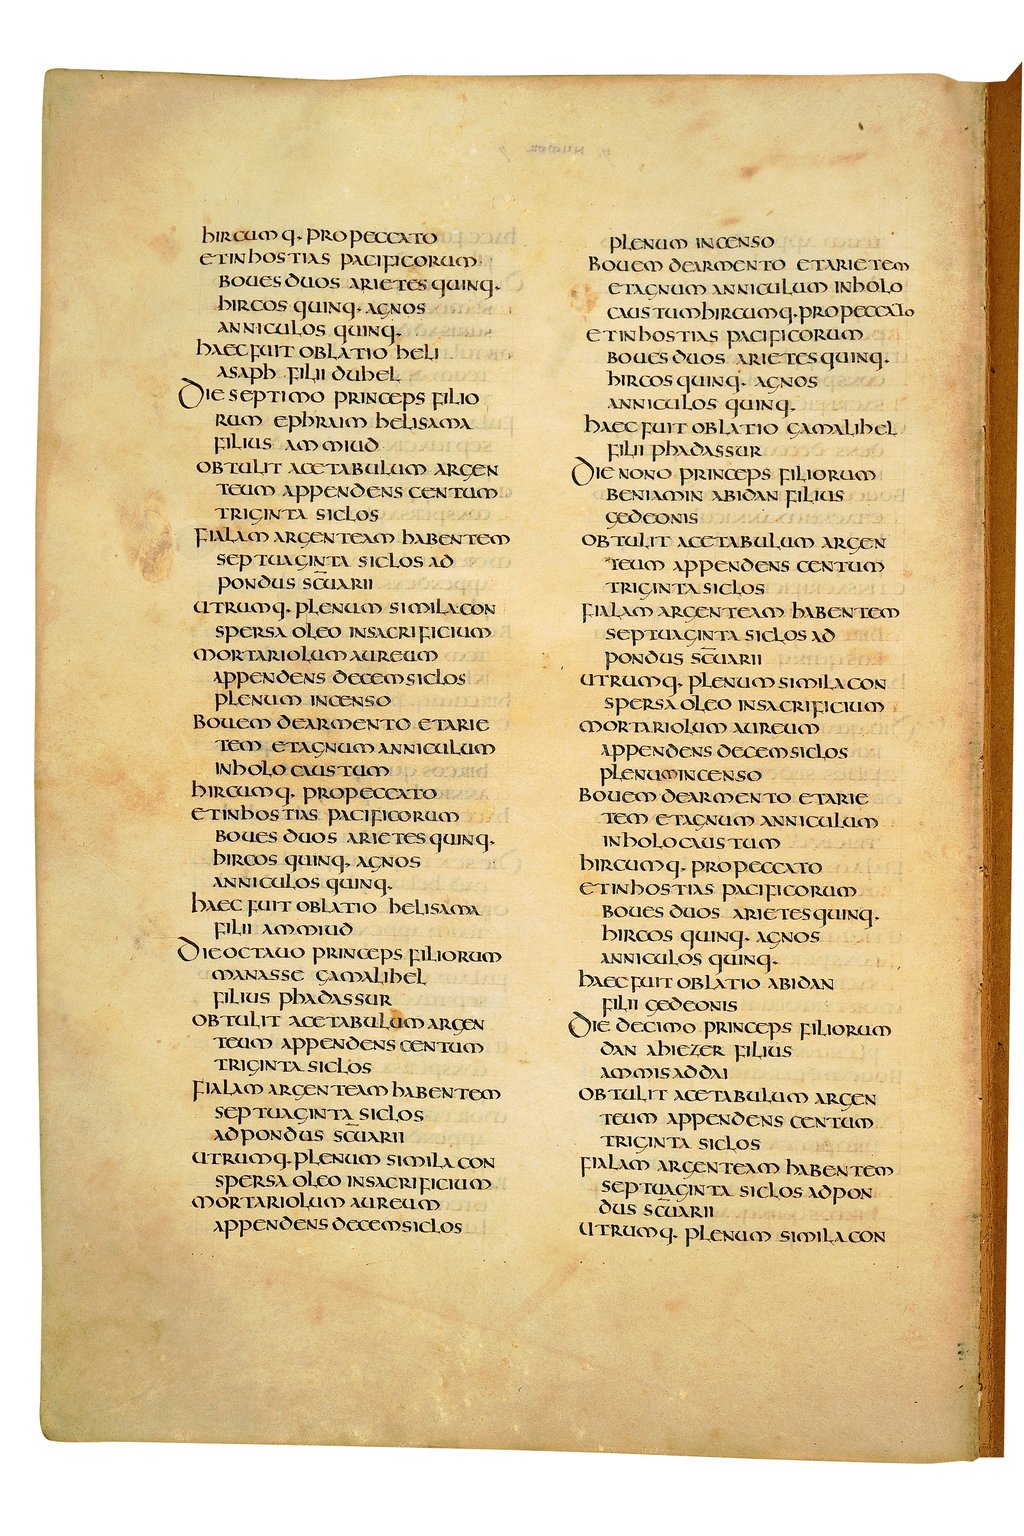 hircum q· pro peccato
et in hostias pacificorum
boues duos arietes quinq·
hircos quinq· agnos
anniculos quinq·
haec fuit oblatio heli
asaph filii duhel
Die septimo princeps filio
rum ephraim helisama
filius ammiud
obtulit acetabulum argen
teum appendens centum
triginta siclos
fialam argenteam habentem
septuaginta siclos ad
pondus sc̅uarii
utrumq· plenum simila con
spersa oleo in sacrificium
mortariolum aureum
appendens decem siclos
plenum incenso
bouem de armento et arie
tem et agnum anniculum
in holocaustum
hircumq· pro peccato
et in hostias pacificorum
boues duos arietes quinq·
hircos quinq· agnos
anniculos quinq·
haec fuit oblatio helisama
filii ammiud
Die octauo princeps filiorum
manasse gamalihel
filius phadassur
obtulit acetabulum argen
teum appendens centum
triginta siclos
fialam argenteam habentem
septuaginta siclos
ad pondus sc̅uarii
utrumq· plenum simila con
spersa oleo in sacrificium
mortariolum aureum
appendens decem siclos
plenum incenso
bouem de armento et arietem
et agnum anniculum in holo
caustum hircumq· pro peccato
et in hostias pacificorum
boues duos arietes quinq·
hircos quinq· agnos
anniculos quinq·
haec fuit oblatio gamalihel
filii phadassur
Die nono princeps filiorum
beniamin abidan filius
gedeonis
obtulit acetabulum argen
teum appendens centum
triginta siclos
fialam argenteam habentem
septuaginta siclos ad
pondus sc̅uarii
utrumq· plenum simila con
spersa oleo in sacrificium
mortariolum aureum
appendens decem siclos
plenum incenso
bouem de armento et arie
tem et agnum anniculum
in holocaustum
hircumq· pro peccato
et in hostias pacificorum
boues duos arietes quinq·
hircos quinq· agnos
anniculos quinq·
haec fuit oblatio abidan
filii gedeonis
Die decimo princeps filiorum
dan ahiezer filius
ammisaddai
obtulit acetabulum argen
teum appendens centum
triginta siclos
fialam argenteam habentem
septuaginta siclos ad pon
dus sc̅uarii
utrumq· plenum simila con